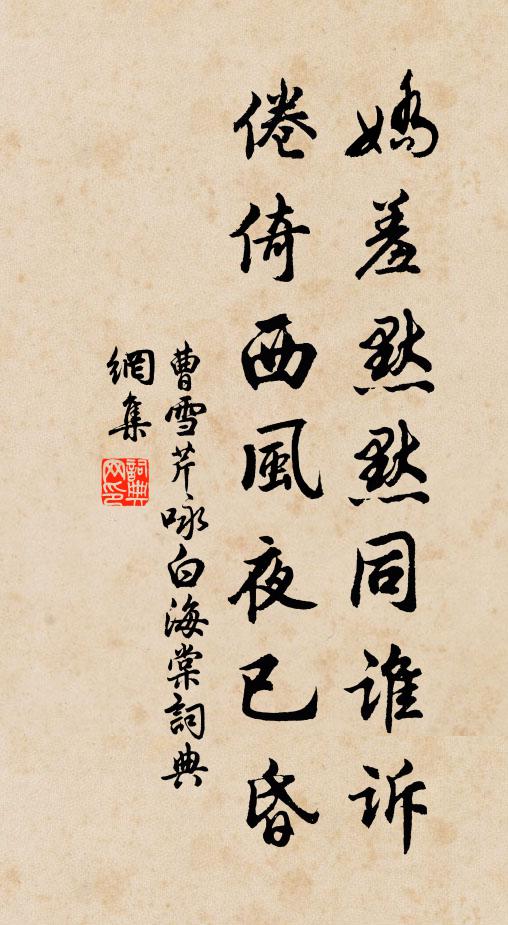 嬌羞默默同誰訴
倦倚西風夜已昏
曹雪芹咏白海棠詞典
網集
詞典網印